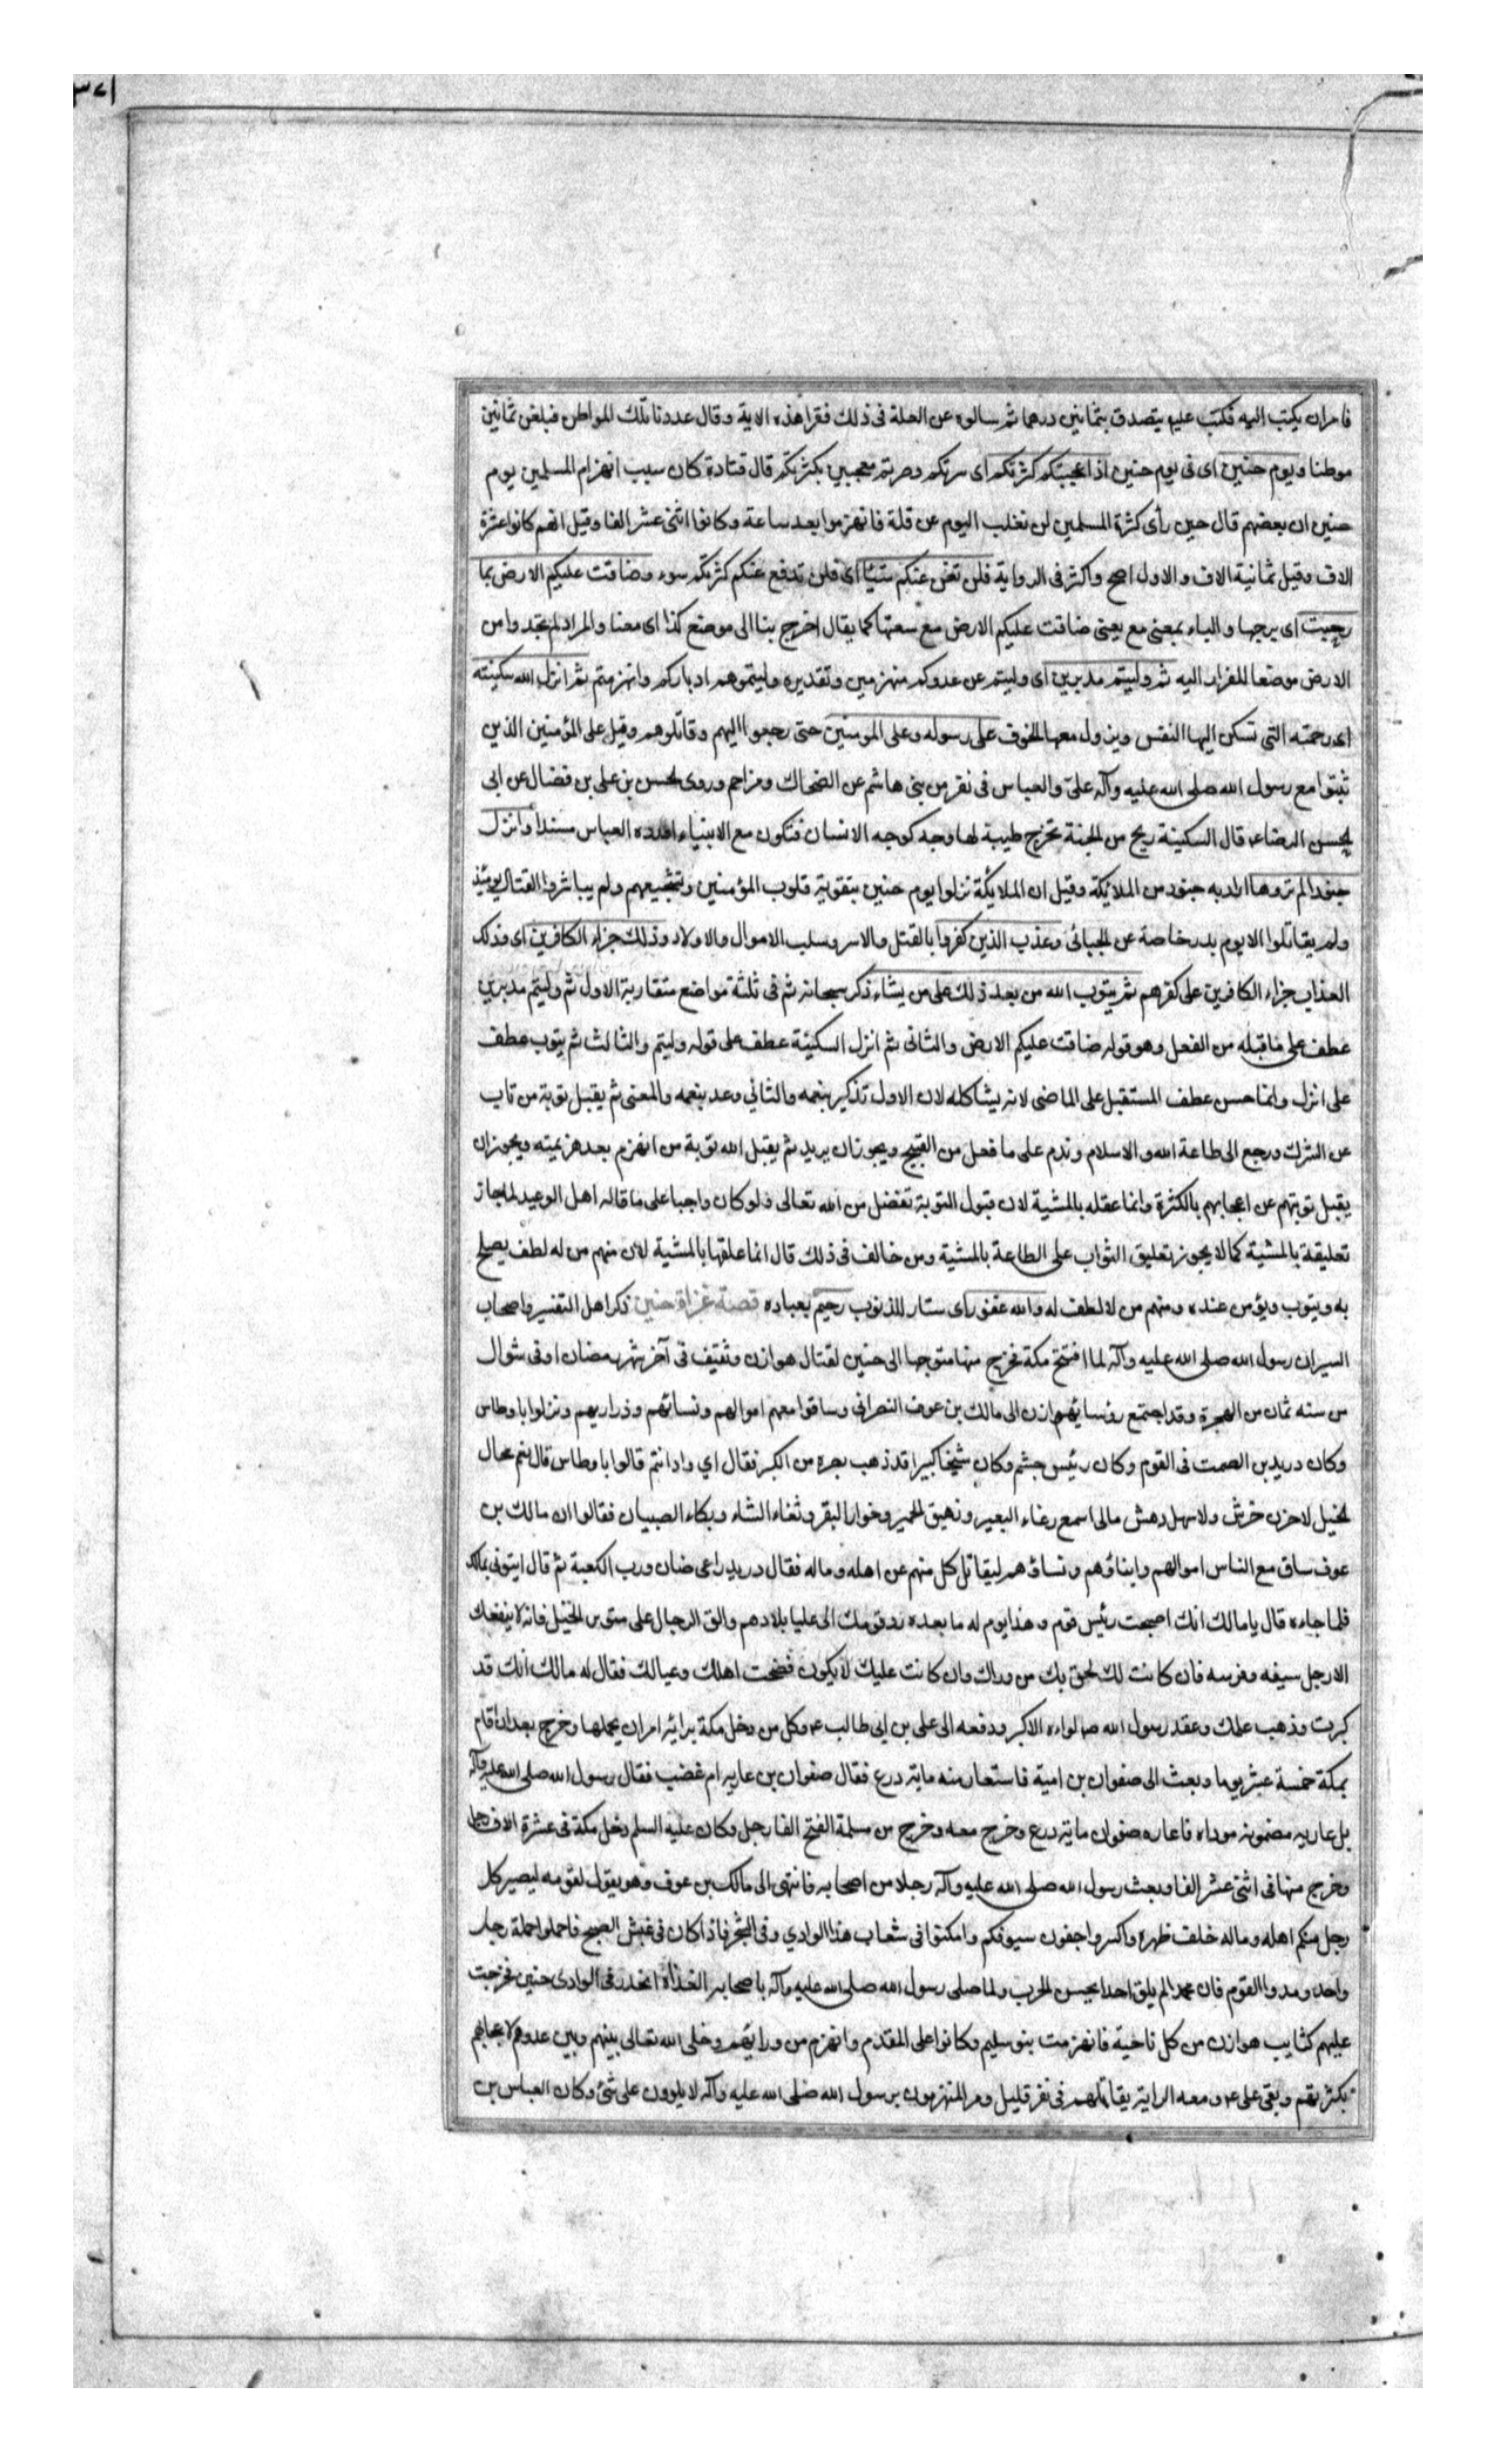 ٣٧١
فامران يكتب اليه فكتب عليه يتصدق بثمانين درهما ثم سالوه عن العلة فى ذلك فقرا هذه الاية وقال عددنا تلك المواطن فبلغن ثمانين
موطنا ويوم حنين اى فى يوم حنين اذ اعجبتكم كثرتكم اى سرتكم وصرتم معجبين بكثرتكم قال قتادة كان سبب انهزام المسلمين يوم
حنين ان بعضهم قال حين رأى كثرة المسلمين لن نغلب اليوم عن قلة فانهزموا بعد ساعة وكانوا اثنى عشر الفا وقيل انهم كانوا عشرة
الاف وقيل ثمانية الاف والاول اصح واكثر فى الرواية فلن تغن عنكم شيئا اى فلن تدفع عنكم كثرتكم سوء وضاقت عليكم الارض بما
رحبت اى برحبها والباء بمعنى مع يعنى ضاقت عليكم الارض مع سعتها كما يقال اخرج بنا الى موضع كذا اى معنا والمراد لم تجدوا من
الارض موضعا للفرار اليه ثم وليتم مدبرين اى وليتم عن عدوكم منهزمين وتقديره وليتموهم ادباركم وانهزمتم ثم انزل الله سكينته
اى رحمته التى تسكن اليها النفس ويزول معها الخوف على رسوله وعلى المومنين حتى رجعوا اليهم وقاتلوهم وقيل على المؤمنين الذين
ثبتوا مع رسول الله صلى الله عليه وآله على والعباس فى نفر من بنى هاشم عن الضحاك ومزاحم وروى لحسن بن على بن فضال عن ابى
لحسن الرضا ع قال السكينة ريح من لجنة تخرج طيبة لها وجه كوجه الانسان فتكون مع الانبياء اورده العباس مسندا وانزل
جنودا لم تروها اراد به جنود من الملائكة وقيل ان الملائكة نزلوا يوم حنين بتقوية قلوب المؤمنين وتشجيعهم ولم يباشروا القتال يومئذ
ولم يقاتلوا الا يوم بدر خاصة عن لجبائى وعذب الذين كفروا بالقتل والاسر وسلب الاموال والاولاد وذلك جزاء الكافرين اى وذلك
العذاب جزاء الكافرين على كفرهم ثم يتوب الله من بعد ذلك على من يشاء ذكر سبحانه ثم فى ثلثة مواضع متقاربة الاول ثم وليتم مدبرين
عطف على ما قبله من الفعل وهو قوله ضاقت عليكم الارض والثانى ثم انزل السكينة عطف على قوله وليتم والثالث ثم يتوب عطف
على انزل وانما حسن عطف المستقبل على الماضى لانه يشاكله لان الاول تذكير بنعمه والثانى وعد بنعمه والمعنى ثم يقبل توبة من تاب
عن الشرك ورجع الى طاعة الله والاسلام وندم على ما فعل من القبيح ويجوز ان يريد ثم يقبل الله توبة من انهزم بعد هزيمته ويجوز ان
يقبل توبتهم عن اعجابهم بالكثرة وانما عقله بالمشية لان قبول التوبة تفضل من الله تعالى ولو كان واجبا على ما قاله اهل الوعيد لما جاز
تعليقة بالمشية كما لا يجوز تعليق الثواب على الطاعة بالمشية ومن خالف فى ذلك قال انما علقها بالمشية لان منهم من له لطف يصلح
به ويتوب ويؤمن عنده ومنهم من لا لطف له والله غفور اى ستار للذنوب رحيم بعباده قصة غزاة حنين ذكر اهل التفسير واصحاب
السير ان رسول الله صلى الله عليه وآله لما افتتح مكة فخرج منها متوجها الى حنين لقتال هوازن وثقيف فى آخر شهر رمضان او فى شوال
من سنه ثمان من الهجرة وقد اجتمع رؤسا هوازن الى مالك بن عوف النصرانى وساقوا معهم اموالهم ونسائهم وذراريهم ونزلوا باوطاس
وكان دريد بن الصمت فى القوم وكان رئيس جشم وكان شيخا كبيرا قد ذهب بصره من الكبر فقال اي واد انتم قالوا باوطاس قال نعم مجال
لخيل لا حزن خرش ولا سهل دهش مالى اسمع رغاء البعير ونهيق الحمير وخوار البقر وثغاء الشاء وبكاء الصبيان فقالوا ان مالك بن
عوف ساق مع الناس اموالهم وابناؤهم ونساؤهم ليقاتل كل منهم عن اهله وماله فقال دريد راعى ضان ورب الكعبة ثم قال ايتونى بمالك
فلما جاءه قال يا مالك انك اصبحت رئيس قوم وهذا يوم له ما بعده رد قومك الى عليا بلادهم والق الرجال على متون الخيل فانه لا ينفعك
الا رجل سيفه وفرسه فان كانت لك لحق بك من وراك وان كانت عليك لا يكون فضحت اهلك وعيالك فقال له مالك انك قد
كبرت وذهب علمك وعقد رسول الله ص لواءه الاكبر ودفعه الى على بن ابى طالب ع وكل من دخل مكة براية امر ان يحملها وخرج بعد ان اقام
بمكة خمسة عشر يوما وبعث الى صفوان بن امية فاستعار منه ماية درع فقال صفوان بن عارية ام غضب فقال رسول الله صلى الله عليه وآله
بل عارية مضمونة موداة فاعاره صفوان ماية درع وخرج معه وخرج من مسلمة الفتح الفا رجل وكان عليه السلم دخل مكة فى عشرة الاف رجل
وخرج منها فى اثنى عشر الفا وبعث رسول الله صلى الله عليه وآله رجلا من اصحابه فانتهى الى مالك بن عوف وهو يقول لقومه ليصير كل
رجل منكم اهله وماله خلف ظهره واكسروا جفون سيوفكم وامكنوا فى شعاب هذا الوادي وفى الشجر فاذا كان فى غبش الصبح فاحملوا حملة رجل
واحد ومدوا القوم فان محمدا لم يلق احدا يحسن لحرب ولما صلى رسول الله صلى الله عليه وآله باصحابه الغداة انحدر فى الوادى حنين فخرجت
عليهم كتايب هوازن من كل ناحية فانهزمت بنو سليم وكانوا على المقدم وانهزم من ورائهم وخلى الله تعالى بينهم وبين عدوهم لاعجابهم
بكثرتهم وبقى على ع ومعه الراية يقاتلهم فى نفر قليل ومر المنهزمون برسول الله صلى الله عليه وآله لا يلوون على شئ وكان العباس بن